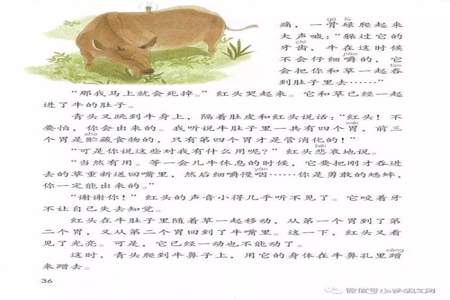 蹦，一骨碌爬起来
大声喊：“躲过它的
牙齿，牛在这时候
不会仔细嚼的，它
会把你和草一起吞
到肚里去……”
“那我马上就会死掉。”红头哭起来。它和草已经一起
进了牛的肚子。
青头又跳到牛身上，隔着肚皮和红头说话：“红头！不
要怕，你会出来的。我听说牛肚子里一共有四个胃，前三
个胃是贮藏食物的，只有第四个胃才是管消化的！”
“可是你说这些对我有什么用呢？”红头悲哀地说。
“当然有用。等一会儿牛休息的时候，它要把刚才吞进
去的草重新送回嘴里，然后细嚼慢咽……你是勇敢的蟋蟀，
你一定能出来的。”
“谢谢你！”红头的声音小得几乎听不见了。它咬着牙
不让自己失去知觉。
红头在牛肚子里随着草一起移动，从第一个胃到了第
二个胃，又从第二个胃回到了牛嘴里。这一下，红头又看
见了光亮。可是，它已经一动也不能动了。
这时，青头爬到牛鼻子上，用它的身体在牛鼻孔里蹭
来蹭去。
36